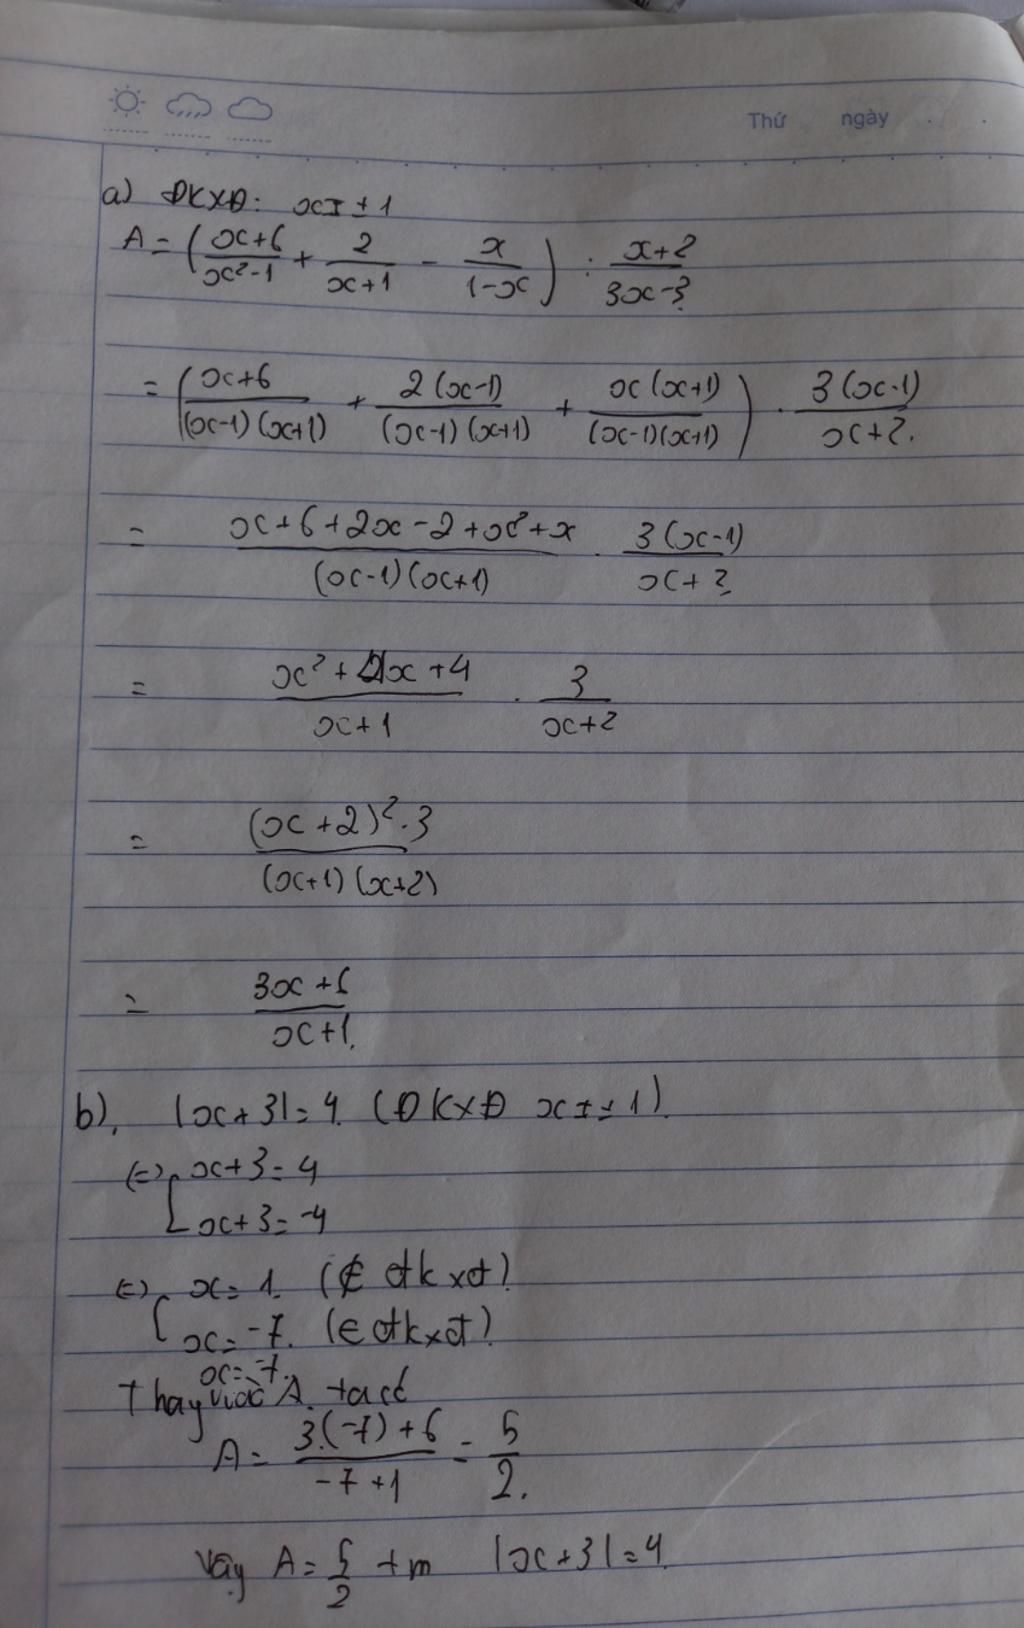 Thứ ngày
a) ĐKXĐ: x ≠ ± 1
A = ( (x+6)/(x²-1) + 2/(x+1) - x/(1-x) ) : (x+2)/(3x-3)
= ( (x+6)/((x-1)(x+1)) + 2(x-1)/((x-1)(x+1)) + x(x+1)/((x-1)(x+1)) ) . 3(x-1)/(x+2).
= (x+6+2x-2+x²+x)/((x-1)(x+1)) . 3(x-1)/(x+2)
= (x²+4x+4)/(x+1) . 3/(x+2)
= ((x+2)².3)/((x+1)(x+2))
= (3x+6)/(x+1).
b), |x+3|=4. (ĐKXĐ x ≠ ± 1).
(=) [ x+3=4
x+3=-4
(=) [ x=1. (∉ đkxđ)
x=-7. (∈ đkxđ)
x=-7.
Thay vào A. ta có
A = (3.(-7)+6)/(-7+1) = 5/2.
Vậy A = 5/2 tm |x+3|=4.